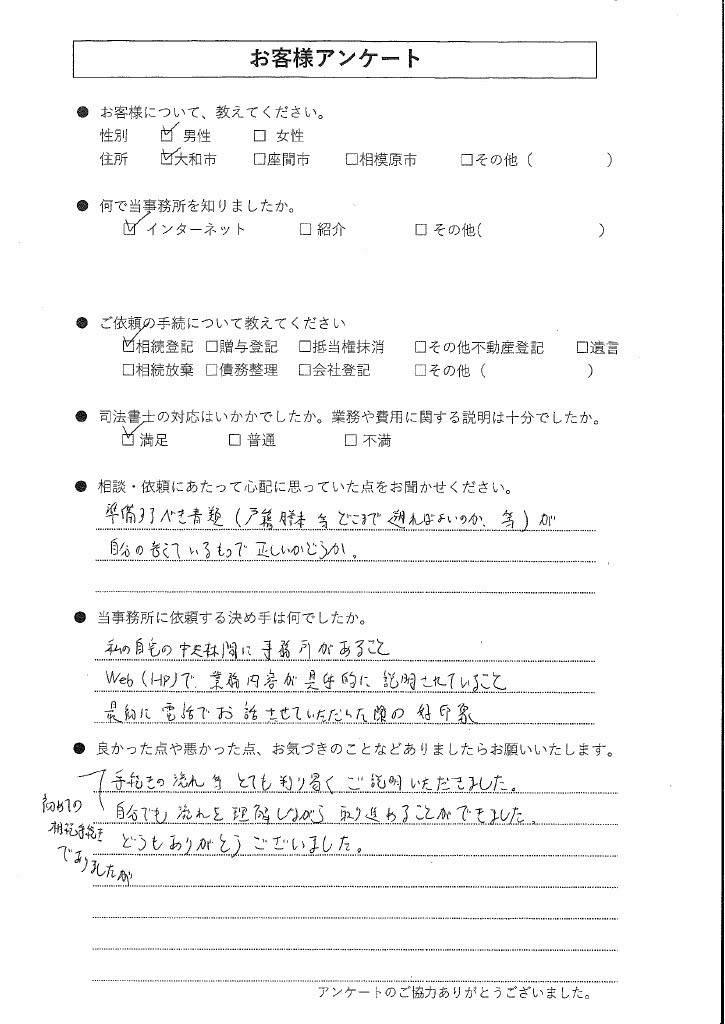 お客様アンケート
● お客様について、教えてください。
性別 ☑ 男性 □ 女性
住所 ☑大和市 □座間市 □相模原市 □その他（ ）
● 何で当事務所を知りましたか。
☑ インターネット □ 紹介 □ その他( )
● ご依頼の手続について教えてください
☑相続登記 □贈与登記 □抵当権抹消 □その他不動産登記 □遺言
□相続放棄 □債務整理 □会社登記 □その他（ ）
● 司法書士の対応はいかかでしたか。業務や費用に関する説明は十分でしたか。
☑ 満足 □ 普通 □ 不満
● 相談・依頼にあたって心配に思っていた点をお聞かせください。
準備するべき書類（戸籍謄本 等 どこまで 遡ればよいのか、等）が
自分の考えているもので 正しいかどうか。
● 当事務所に依頼する決め手は何でしたか。
私の自宅の中央林間に事務所があること
Web（HP）で 業務内容が具体的に 説明されていること
最初に 電話でお話させていただいた際の 好印象
● 良かった点や悪かった点、お気づきのことなどありましたらお願いいたします。
初めての
相続手続き
でありましたが
手続きの流れ 等 とても判り易く ご説明いただきました。
自分でも 流れを理解しながら 取り進めることができました。
どうもありがとうございました。
アンケートのご協力ありがとうございました。